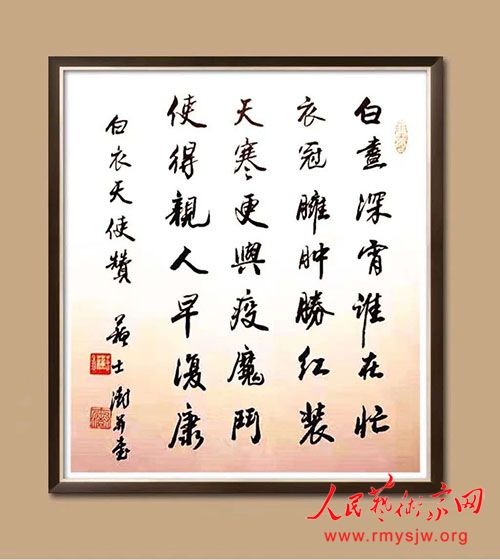 白晝深宵誰在忙
衣冠臃肿勝紅裝
天寒更與疫魔鬥
使得親人早復康
白衣天使贊 蘇士澍并書
人民藝術家网
www.rmysjw.org